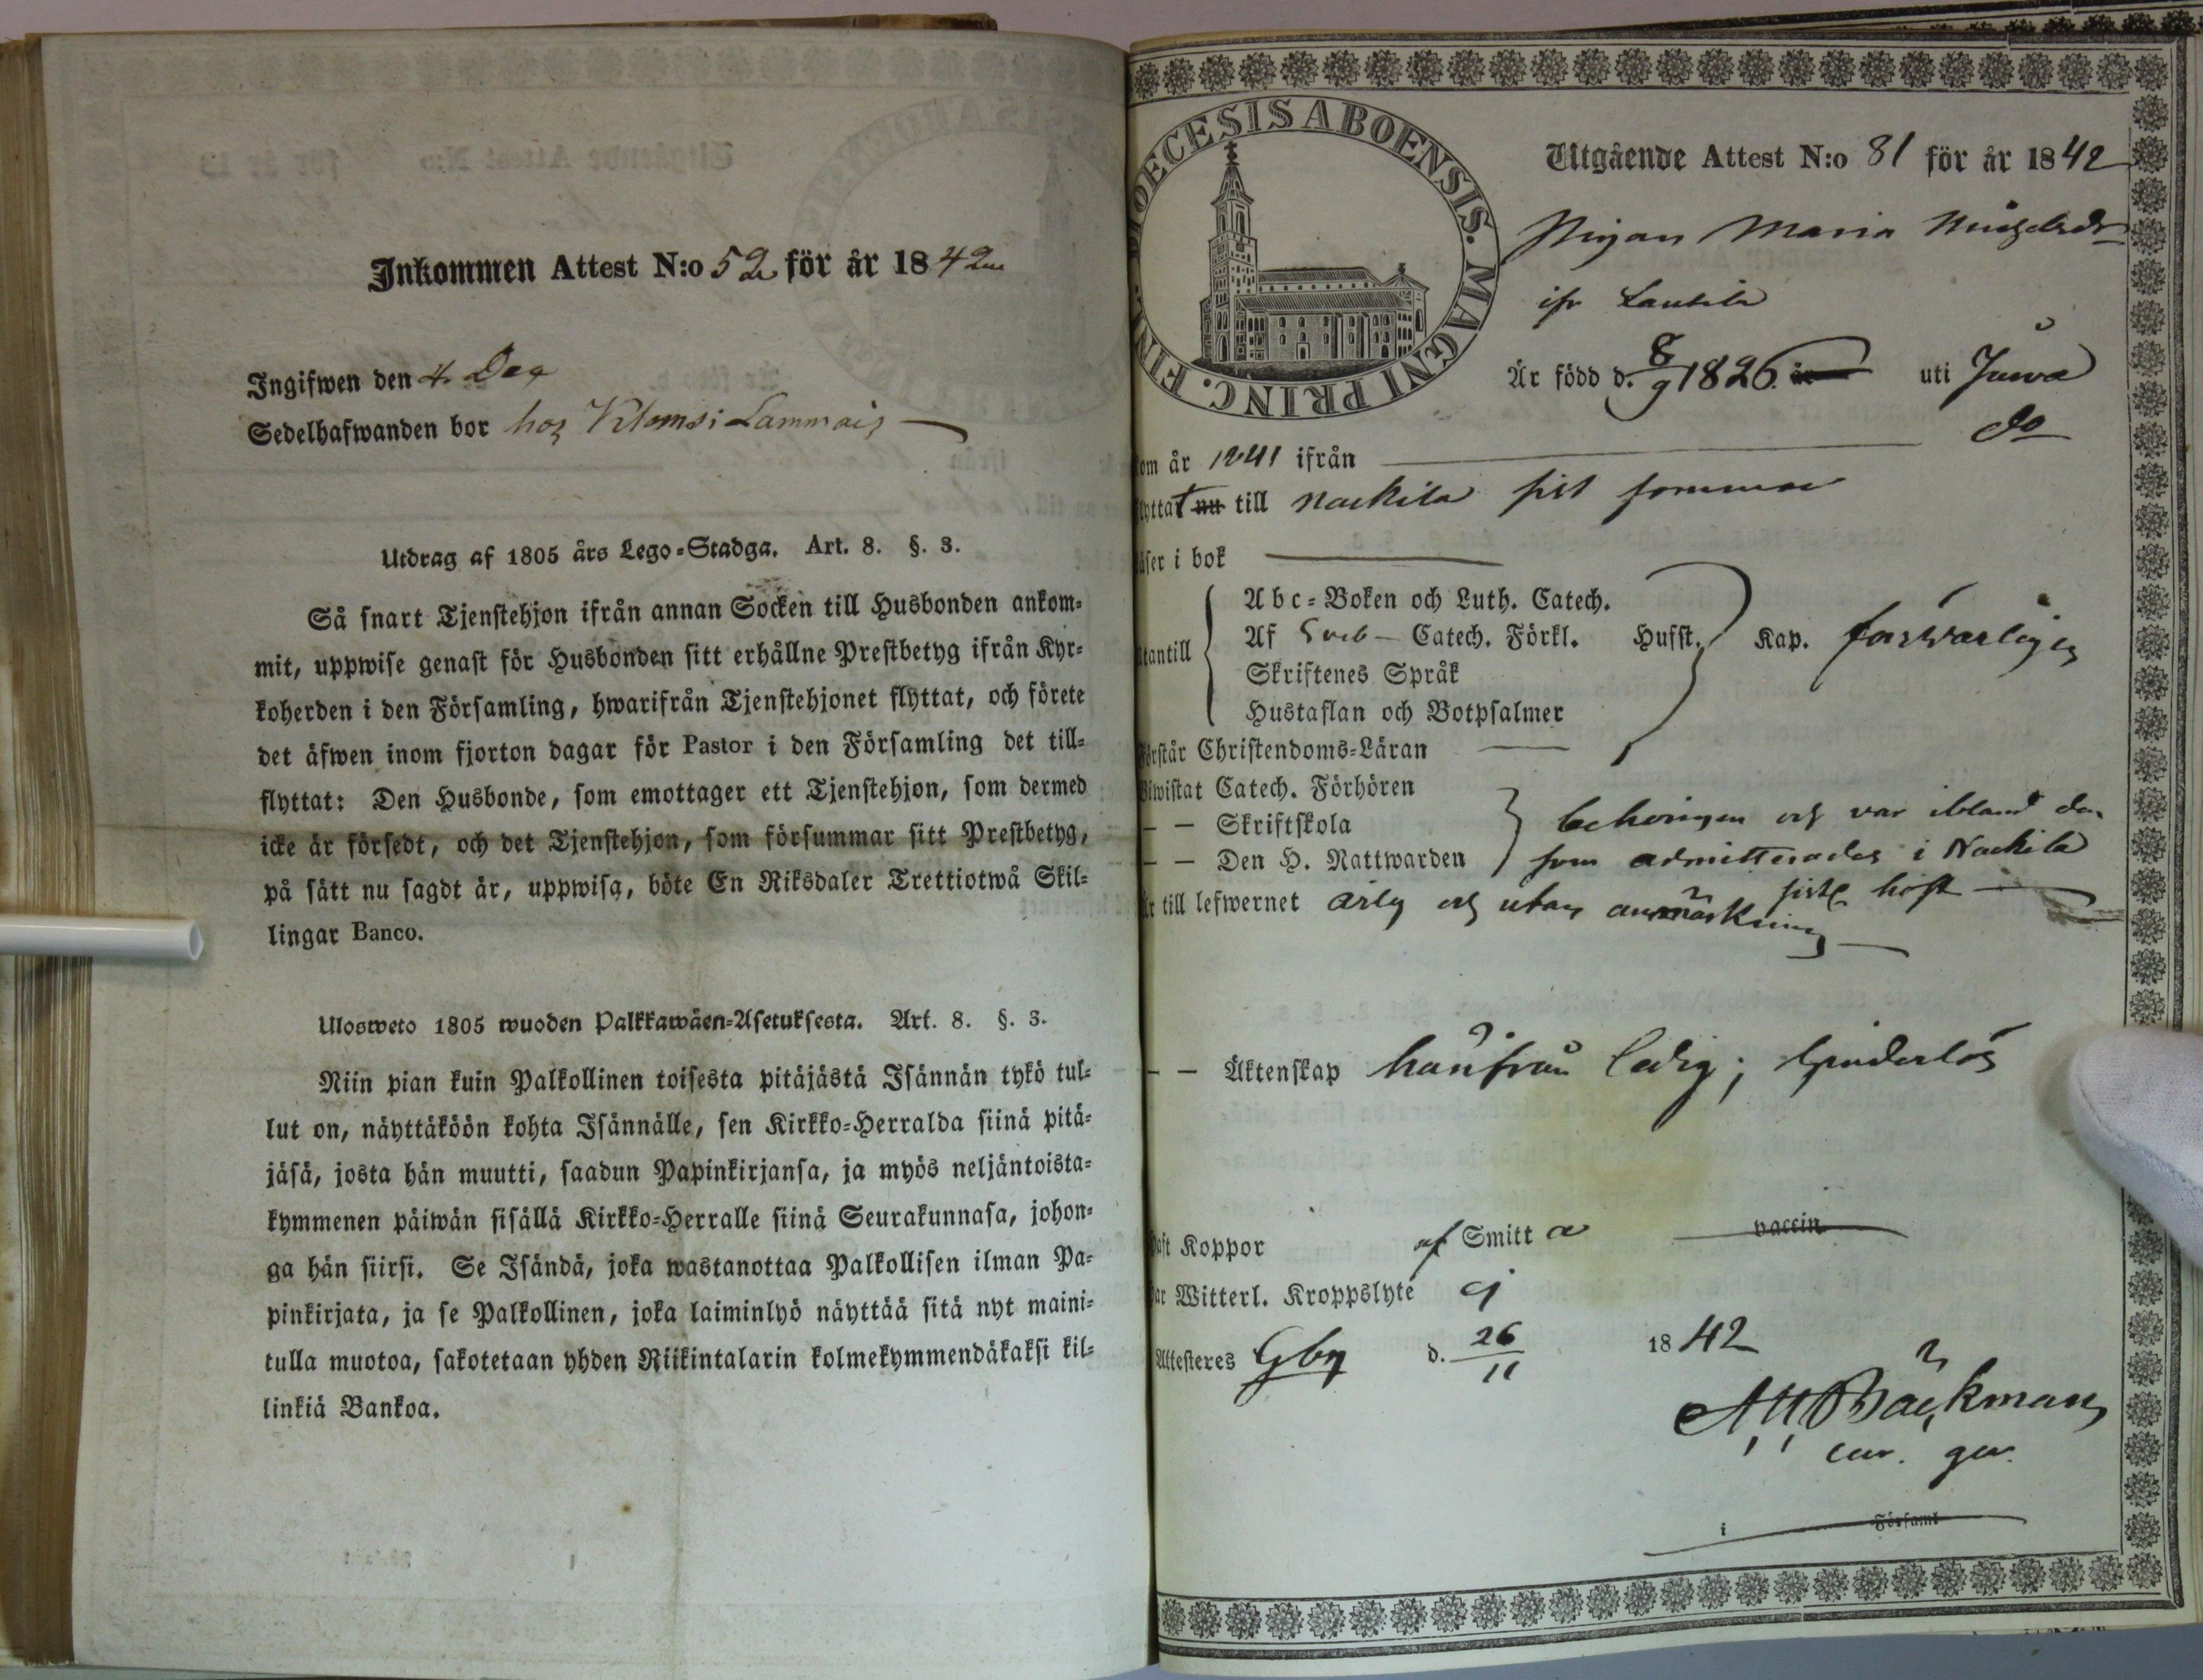 Inkommen Attest N:o 52 för år 1842
Ingifwen den 4 Dec
Sedelhafwanden bor hos Klemsi Lammais
Utdrag af 1805 års Lego-Stadga. Art. 8. §. 3.
Så snart Tjenstehjon ifrån annan Socken till Husbonden ankom-
mit, uppwise genast för Husbonden sitt erhållne Prestbetyg ifrån Kyr-
koherden i den Församling, hwarifrån Tjenstehjonet flyttat, och förete
det äfwen inom fjorton dagar för Pastor i den Församling det till-
flyttat: Den Husbonde, som emottager ett Tjenstehjon, som dermed
icke är försedt, och det Tjenstehjon, som försummar sitt Prestbetyg,
på sätt nu sagdt är, uppwisa, böte En Riksdaler Trettiotwå Skil-
lingar Banco.
Ulosweto 1805 wuoden Palkkawäen-Asetuksesta. Art. 8. §. 3.
Niin pian kuin Palkollinen toisesta pitäjästä Isännän tykö tul-
lut on, näyttäköön kohta Isännälle, sen Kirkko-Herralda siinä pitä-
jäsä, josta hän muutti, saadun Papinkirjansa, ja myös neljäntoista-
kymmenen päiwän sisällä Kirkko-Herralle siinä Seurakunnasa, johon-
ga hän siirsi. Se Isändä, joka wastanottaa Palkollisen ilman Pa-
pinkirjata, ja se Palkollinen, joka laiminlyö näyttää sitä nyt maini-
tulla muotoa, sakotetaan yhden Riikintalarin kolmekymmendäkaksi kil-
linkiä Bankoa.
DIOECESIS ABOENSIS. MAGNI PRINC. FINL.
Utgående Attest N:o 81 för år 1842
Pigan Maria Michelsdr
ifr Lautila
Är född d. 8/9 1826 uti Juva
do
om år 1841 ifrån
yttat nu till Nackila sist sommar
äser i bok
Abc-Boken och Luth. Catech.
tantill Af Sveb Catech. Förkl. Husst. Kap. försvarligen
Skriftenes Språk
Hustaflan och Botpsalmer
örstår Christendoms-Läran
iwistat Catech. Förhören
— — Skriftskola behörigen och var ibland de
— — Den H. Nattwarden som admitterades i Nackila
sistl. höst
r till lefwernet ärlig och utan anmärkning
— — Äktenskap härifrån ledig; hinderlös
aft Koppor af Smitta vaccin
ar Witterl. Kroppslyte ej
Attesteres Gby d. 26/11 1842
Bäckman
cur. ger.
i Församl